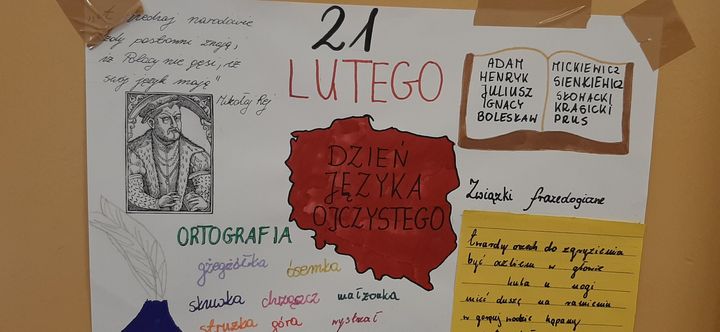 narodowie
postronni znają,
iż Polacy nie gęsi, iż
swój język mają"
Mikołaj Rej
21
LUTEGO
ADAM MICKIEWICZ
HENRYK SIENKIEWICZ
JULIUSZ SŁOWACKI
IGNACY KRASICKI
BOLESŁAW PRUS
DZIEŃ
JĘZYKA
OJCZYSTEGO
ORTOGRAFIA
gżegżółka ósemka
skuwka chrząszcz małżonka
stróżka góra wystrzał
Związki frazeologiczne
twardy orzech do zgryzienia
być oczkiem w głowie
kula u nogi
mieć duszę na ramieniu
w gorącej wodzie kąpany